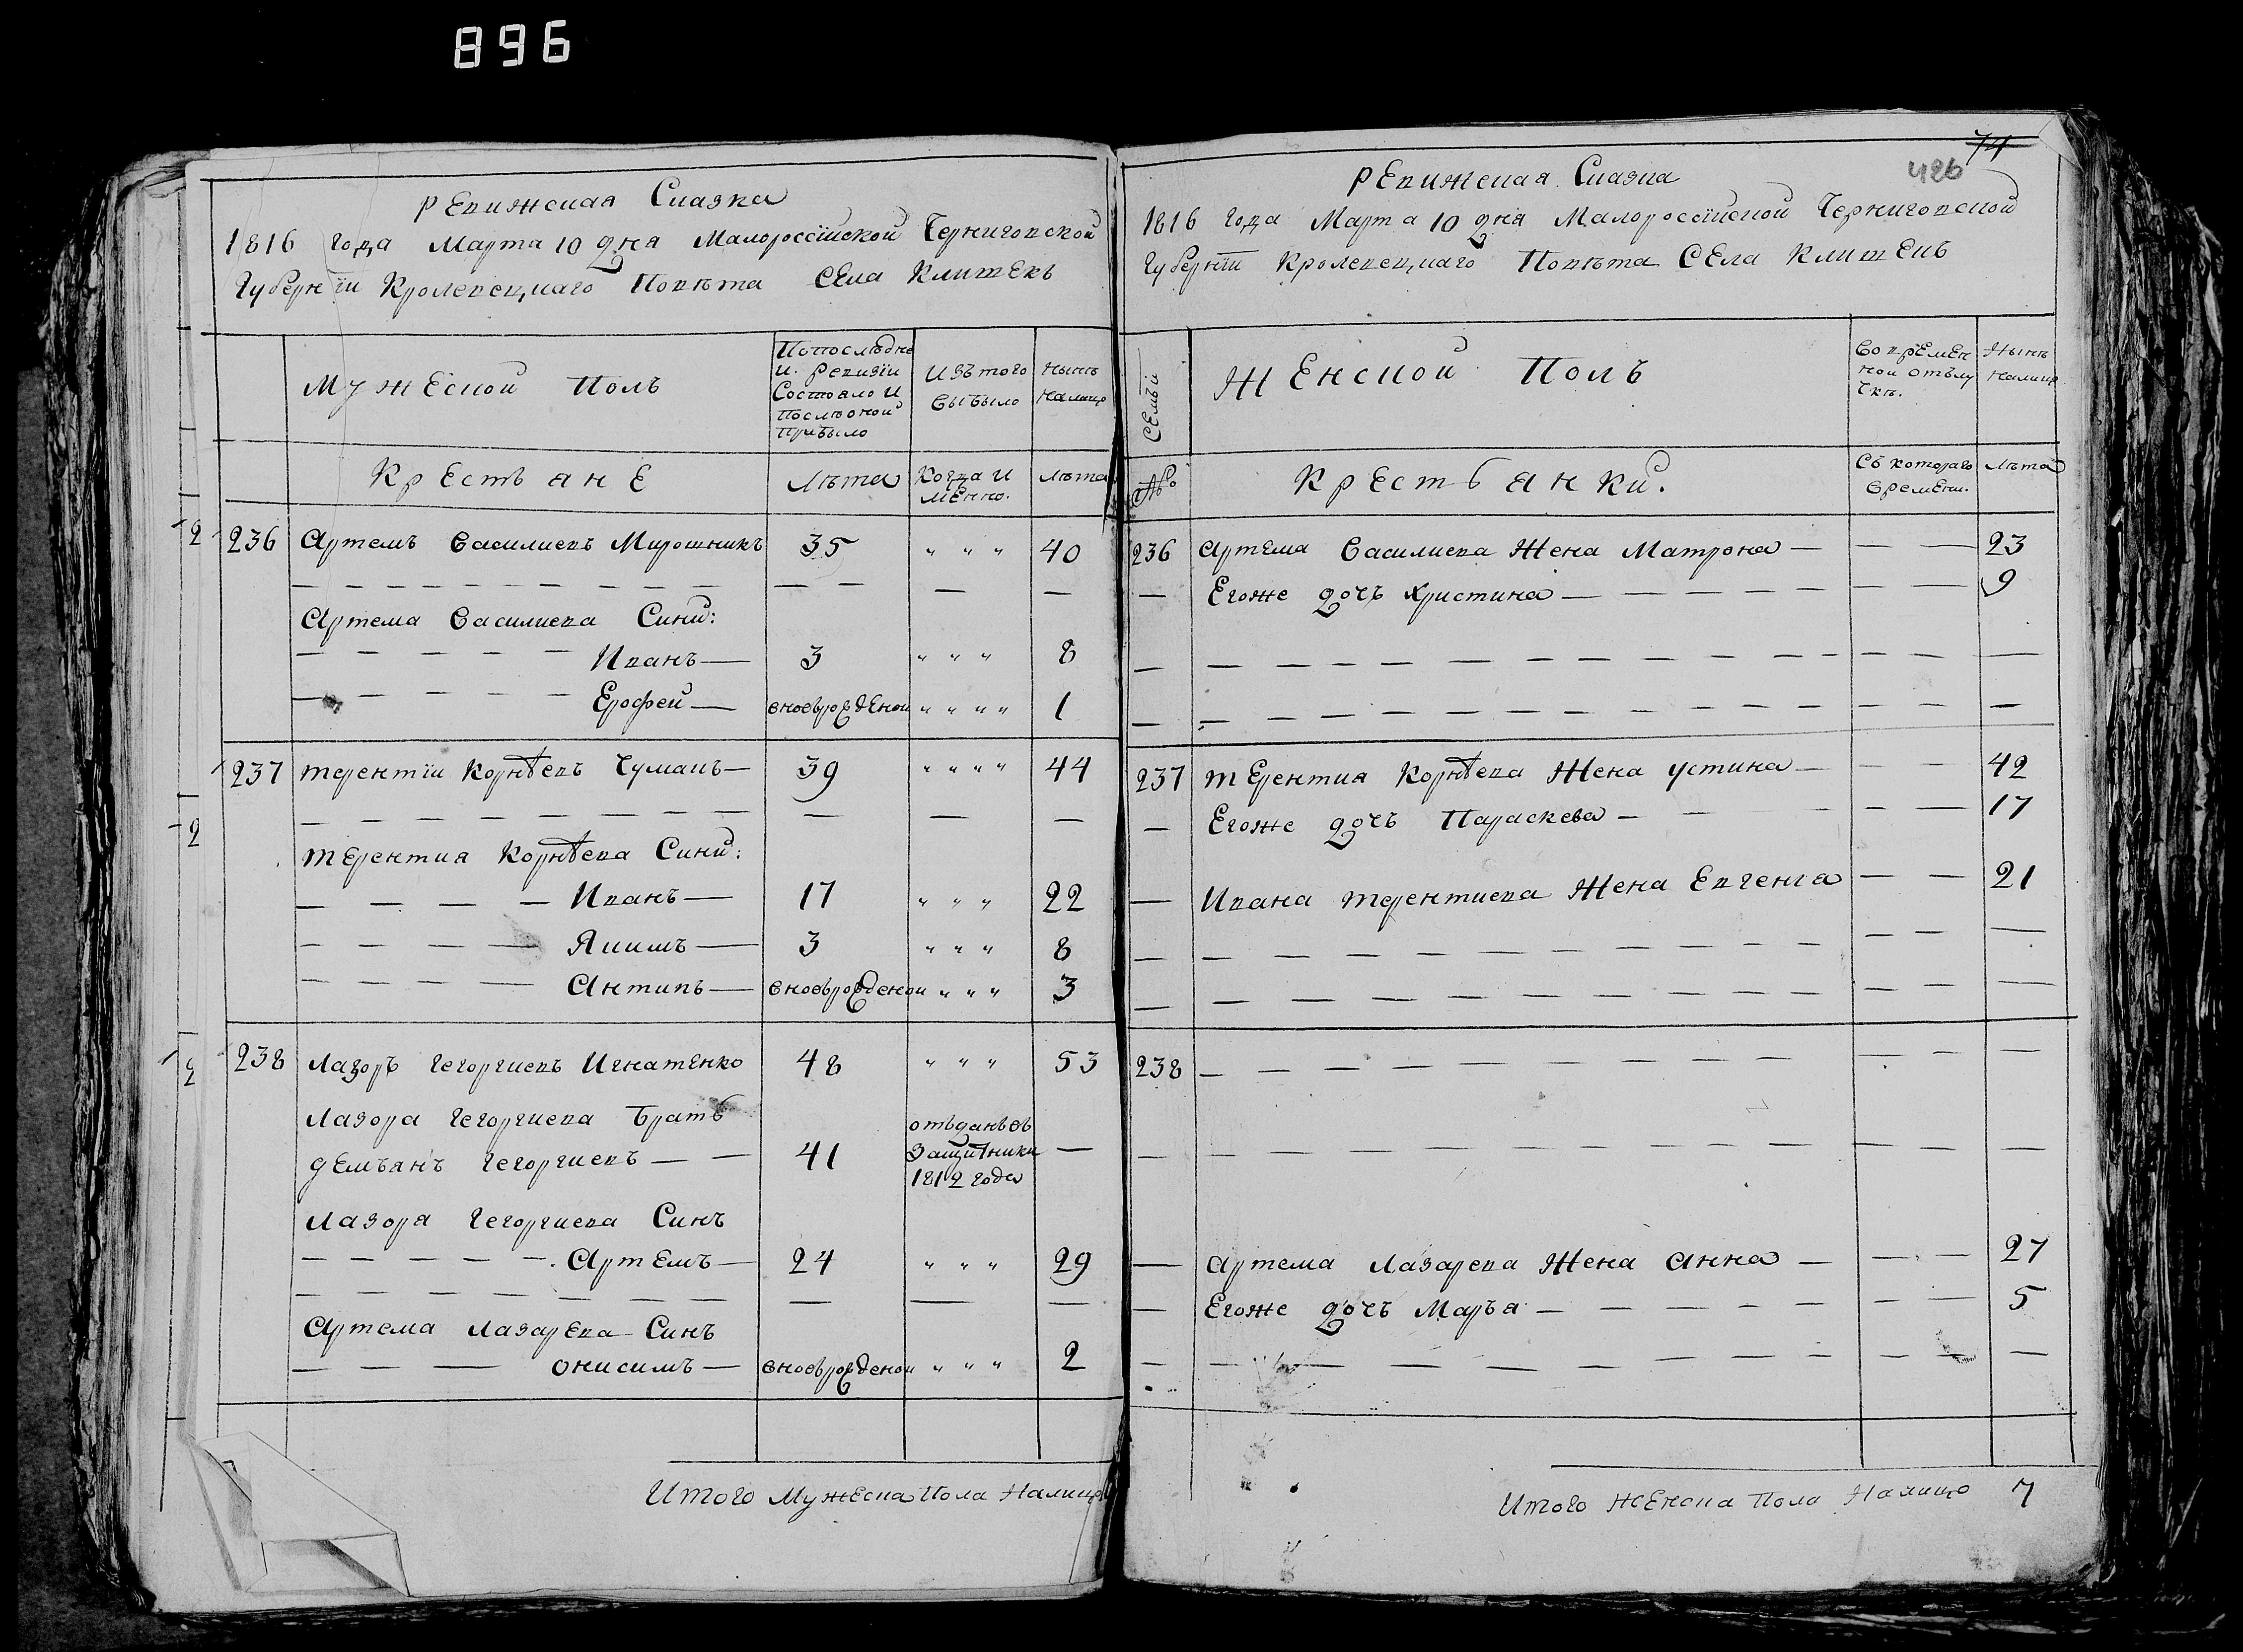 896
Ревижская Сказка
1816 года Марта 10 дня Малороссійской Черниговской
Губерніи Кролевецкаго Повѣта Села Клишекъ
Мужеской Полъ
Попослѣдне
и. ревизіи
Состояло и
послѣ оной
прибыло
Изътого
выбыло
Нынѣ
налицо
Крестьяне
Лѣта
Когда и
мѣнно.
Лѣта
2 236 Артемъ Василиевъ Мирошникъ 35 " " " 40
Артема Василиева Сини:
Иванъ 3 " " " 8
Ерофей вновьрожденой " " " " 1
237 Терентіи Корнѣевъ Чумакъ 39 " " " " 44
2
Терентия Корнѣева Сини:
Иванъ 17 " " " 22
Якимъ 3 " " " 8
Антипъ вновьрожденои " " " 3
2 238 Лазоръ Гегоргиевъ Игнатенко 48 " " " 53
Лазора Гегоргиева Братъ
Демъянъ Гегоргиевъ — — 41 отъданъвъ защитники 1812 года —
Лазоря Гегоргиева Синъ
Артемъ 24 " " " 29
Артема Лазарева Синъ
Онисимъ вновьрожденои " " " 2
Итого Мужеска Пола Налицо
74
426
Ревижская Сказка
1816 года Марта 10 дня Малороссійской Черниговской
Губерніи Кролевецкаго Повѣта Села Клишекъ
Семьи
Женской Полъ
Вовремен
ной отълу
чкѣ.
Нынѣ
налицо
№
Крестьянки.
Съ котораго
времени.
Лѣта
236 Артема Василиева Жена Матрона — — — 23
— Егоже дочъ Христина — 9
237 Терентия Корнѣева Жена Устина — — — 42
— Егоже дочъ Параскева — 17
— Ивана Терентиева Жена Евгения — — 21
238
— Артема Лазарева Жена Анна — — — 27
— Егоже дочъ Маръя — 5
Итого Женска Пола Налицо 7